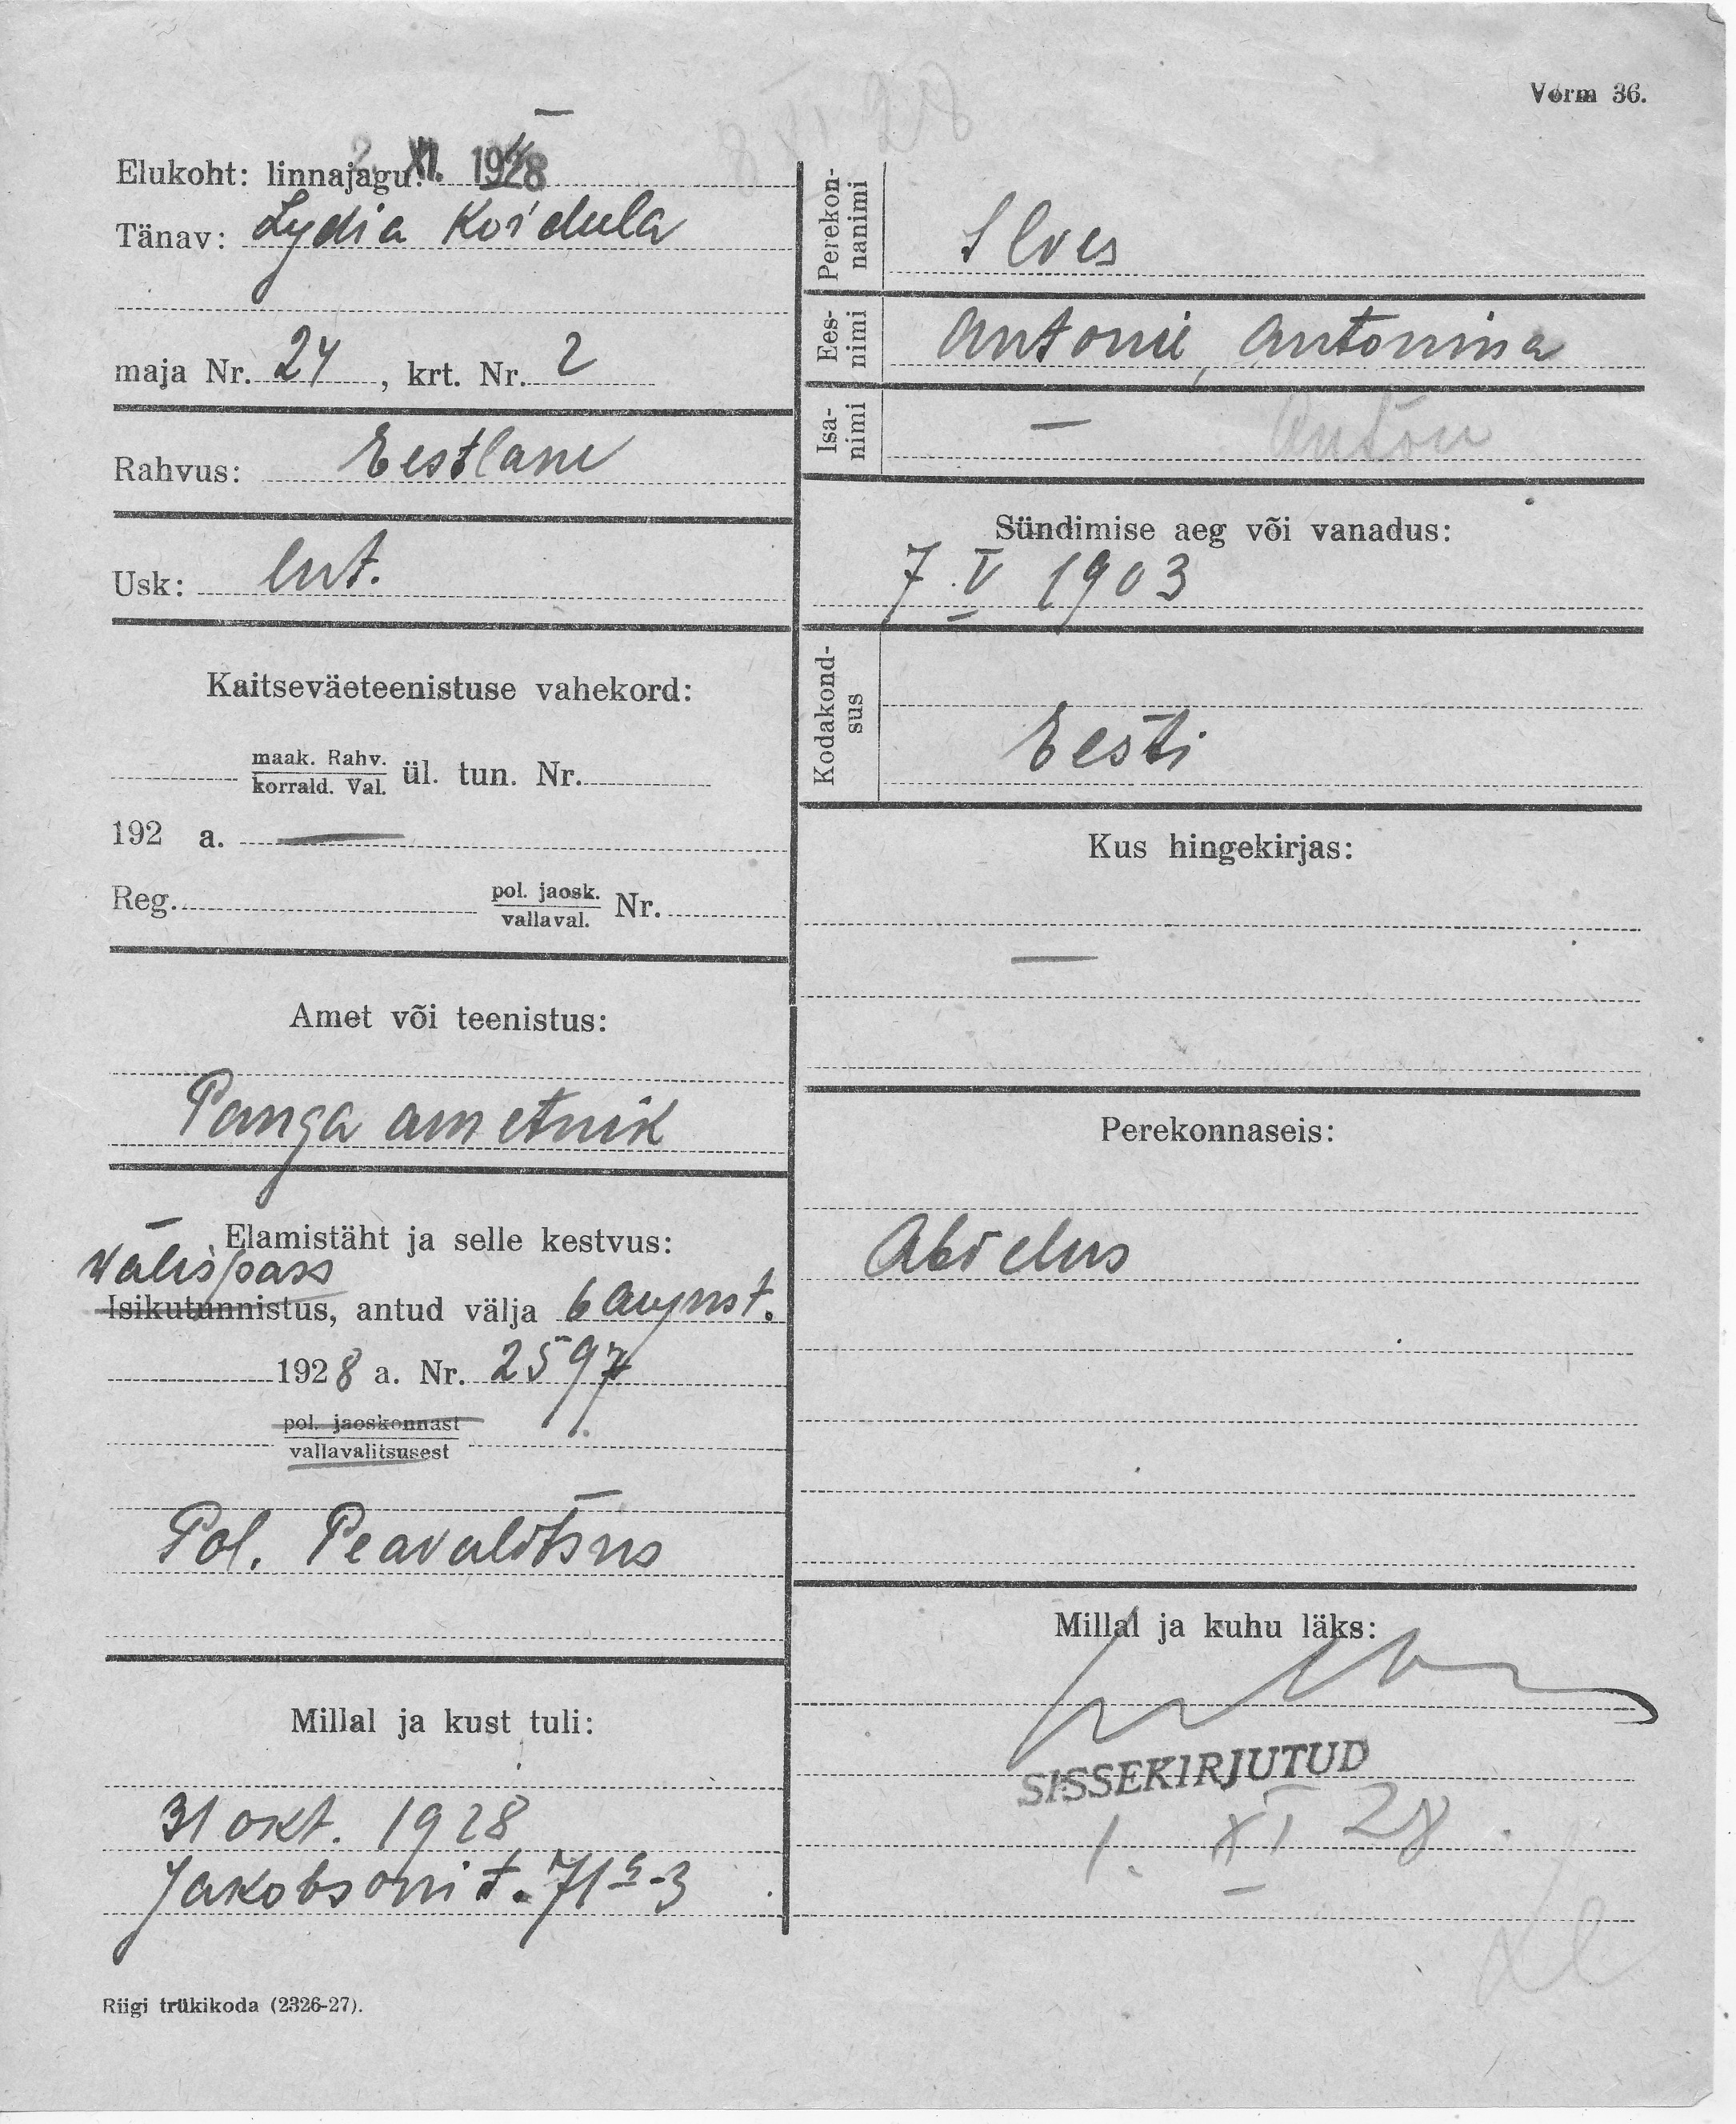 Vorm 36.
8 XI 28
Elukoht: linnajagu: 2. XI. 1928
Tänav: Lydia Koidula
maja Nr. 24, krt. Nr. 2
Rahvus: Eestlane
Usk: lut.
Kaitseväeteenistuse vahekord:
maak. Rahv.
korrald. Val. ül. tun. Nr.
192 a. —
Reg. pol. jaosk.
vallaval. Nr.
Amet või teenistus:
Panga ametnik
Elamistäht ja selle kestvus:
Välispass
Isikutunnistus, antud välja 6 august.
1928 a. Nr. 2597
pol. jaoskonnast
vallavalitsusest
Pol. Peavalitsus
Millal ja kust tuli:
31 okt. 1928
Jakobsoni t. 71a-3
Riigi trükikoda (2326-27).
Perekon-
nanimi
Ilves
Ees-
nimi
Antonie, Antonina
Isa-
nimi
— Anton
Sündimise aeg või vanadus:
7. V 1903
Kodakond-
sus
Eesti
Kus hingekirjas:
—
Perekonnaseis:
Abielus
Millal ja kuhu läks:
SISSEKIRJUTUD
1. XI 28